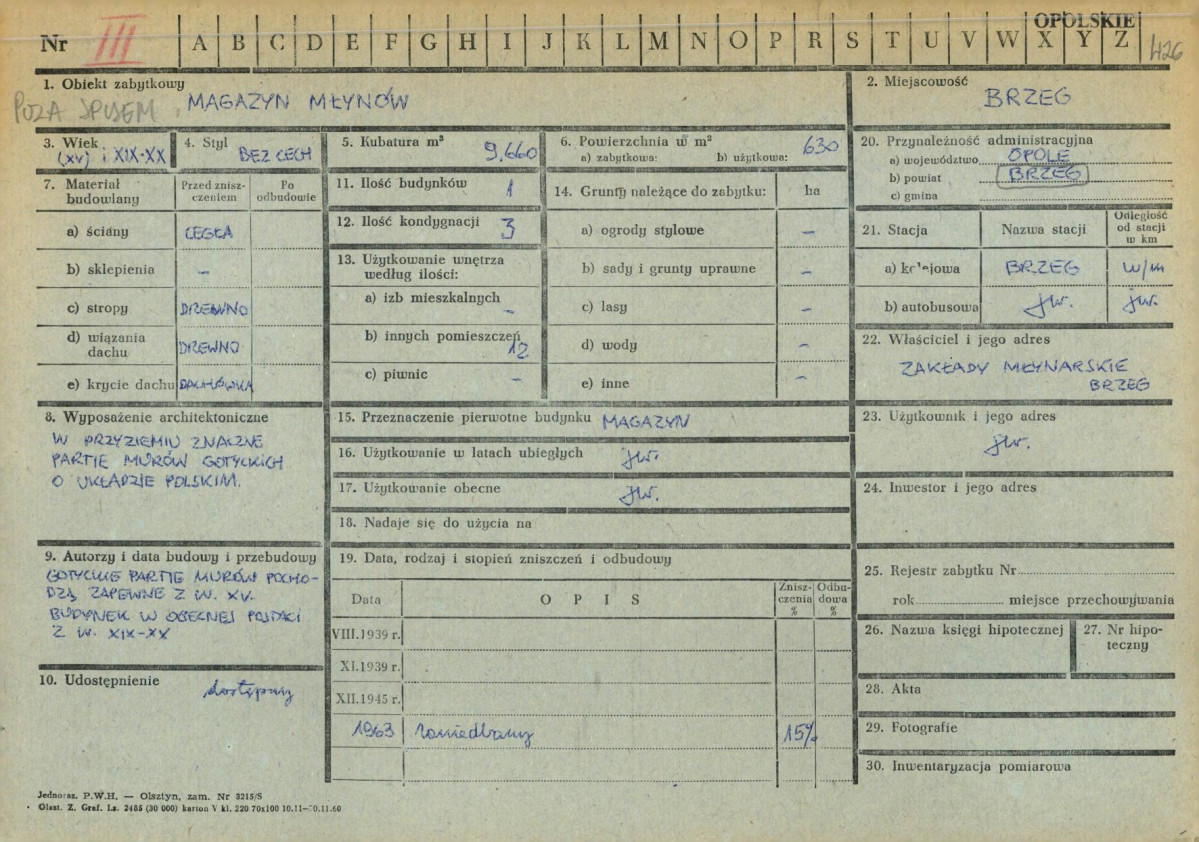 OPOLSKIE
Nr III A B C D E F G H I J K L M N O P R S T U V W X Y Z 426
1. Obiekt zabytkowy
POZA SPISEM MAGAZYN MŁYNÓW
2. Miejscowość
BRZEG
3. Wiek
(XV) i XIX-XX
4. Styl
BEZ CECH
5. Kubatura m³
9.660
6. Powierzchnia w m²
a) zabytkowa: b) użytkowa: 630
7. Materiał budowlany
Przed zniszczeniem
Po odbudowie
a) ściany CEGŁA
b) sklepienia –
c) stropy DREWNO
d) wiązania dachu DREWNO
e) krycie dachu DACHÓWKA
8. Wyposażenie architektoniczne
W PRZYZIEMIU ZNACZNE
PARTIE MURÓW GOTYCKICH
O UKŁADZIE POLSKIM.
9. Autorzy i data budowy i przebudowy
GOTYCKIE PARTIE MURÓW POCHO-
DZĄ ZAPEWNE Z W. XV.
BUDYNEK W OBECNEJ POSTACI
Z W. XIX-XX
10. Udostępnienie
dostępny
11. Ilość budynków 1
12. Ilość kondygnacji 3
13. Użytkowanie wnętrza
według ilości:
a) izb mieszkalnych
–
b) innych pomieszczeń
12
c) piwnic –
14. Grunty należące do zabytku: ha
a) ogrody stylowe –
b) sady i grunty uprawne –
c) lasy –
d) wody –
e) inne –
15. Przeznaczenie pierwotne budynku MAGAZYN
16. Użytkowanie w latach ubiegłych jw.
17. Użytkowanie obecne jw.
18. Nadaje się do użycia na
19. Data, rodzaj i stopień zniszczeń i odbudowy
Data OPIS Zniszczenia % Odbudowa %
VIII.1939 r.
XI.1939 r.
XII.1945 r.
1963 zaniedbany 15%
20. Przynależność administracyjna
a) województwo OPOLE
b) powiat BRZEG
c) gmina
21. Stacja Nazwa stacji Odległość od stacji w km
a) kolejowa BRZEG w/m
b) autobusowa jw. jw.
22. Właściciel i jego adres
ZAKŁADY MŁYNARSKIE
BRZEG
23. Użytkownik i jego adres
jw.
24. Inwestor i jego adres
25. Rejestr zabytku Nr
rok miejsce przechowywania
26. Nazwa księgi hipotecznej
27. Nr hipo-
teczny
28. Akta
29. Fotografie
30. Inwentaryzacja pomiarowa
Jednoraz. P.W.H. — Olsztyn, zam. Nr 3215/S
Olszt. Z. Graf. Lz. 2485 (30 000) karton V kl. 220 70x100 10.11-30.11.60